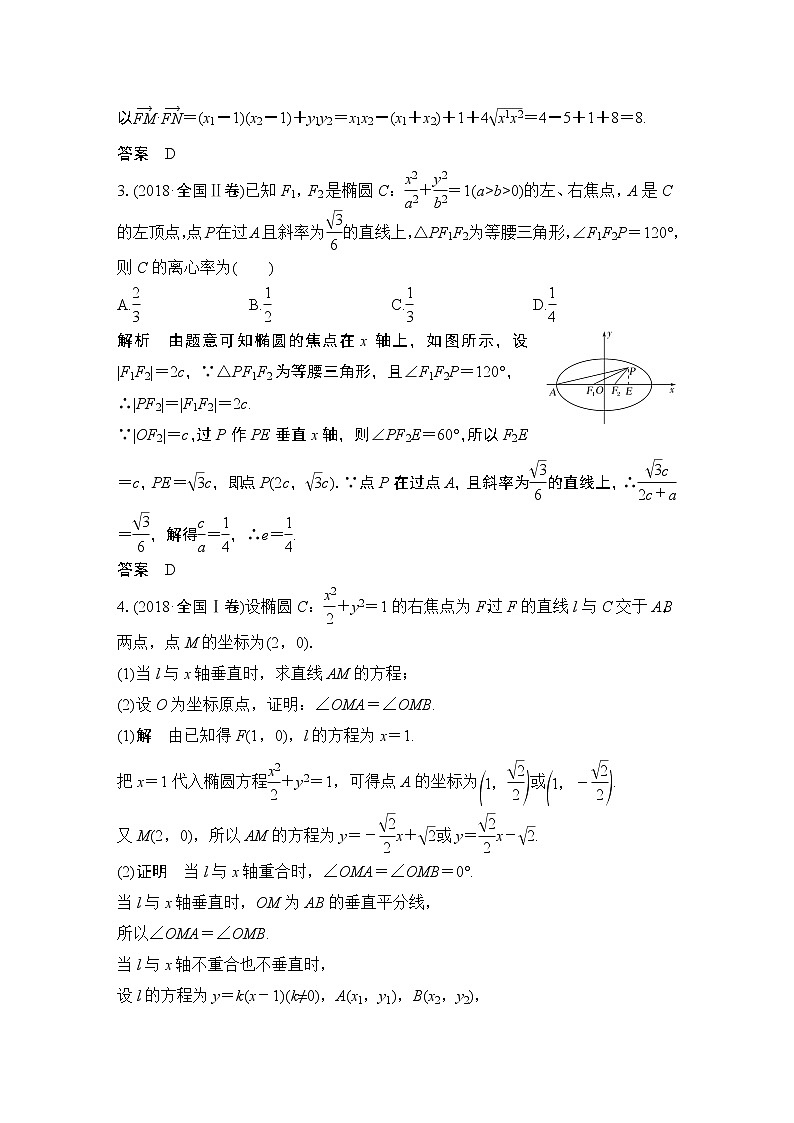 以FM→·FN→=(x₁－1)(x₂－1)＋y₁y₂＝x₁x₂－(x₁＋x₂)＋1＋4√(x1x2)＝4－5＋1＋8＝8.
答案　D
3. (2018·全国Ⅱ卷)已知 F₁，F₂ 是椭圆 C：x2/a2＋y2/b2＝1(a>b>0)的左、右焦点，A 是 C
的左顶点,点 P 在过 A 且斜率为√3/6的直线上,△PF₁F₂ 为等腰三角形,∠F₁F₂P＝120°,
则 C 的离心率为(　　)
A.2/3　B.1/2　C.1/3　D.1/4
解析　由题意可知椭圆的焦点在 x 轴上，如图所示，设
|F₁F₂|＝2c，∵△PF₁F₂ 为等腰三角形，且∠F₁F₂P＝120°，
∴|PF₂|＝|F₁F₂|＝2c.
∵|OF₂|＝c,过 P 作 PE 垂直 x 轴，则∠PF₂E＝60°,所以 F₂E
＝c，PE＝√3c，即点 P(2c，√3c)．∵点 P 在过点 A，且斜率为√3/6的直线上，∴√3c/(2c＋a)
＝√3/6，解得c/a＝1/4，∴e＝1/4.
y
P
A F₁ O F₂ E x
答案　D
4. (2018·全国Ⅰ卷)设椭圆 C：x2/2＋y²＝1 的右焦点为 F过 F 的直线 l 与 C 交于 AB
两点，点 M 的坐标为(2，0)．
(1)当 l 与 x 轴垂直时，求直线 AM 的方程；
(2)设 O 为坐标原点，证明：∠OMA＝∠OMB.
(1)解　由已知得 F(1，0)，l 的方程为 x＝1.
把 x＝1 代入椭圆方程x2/2＋y²＝1，可得点 A 的坐标为(1，√2/2)或(1，－√2/2).
又 M(2，0)，所以 AM 的方程为 y＝－√2/2x＋√2或 y＝√2/2x－√2.
(2)证明　当 l 与 x 轴重合时，∠OMA＝∠OMB＝0°.
当 l 与 x 轴垂直时，OM 为 AB 的垂直平分线，
所以∠OMA＝∠OMB.
当 l 与 x 轴不重合也不垂直时，
设 l 的方程为 y＝k(x－1)(k≠0)，A(x₁，y₁)，B(x₂，y₂)，